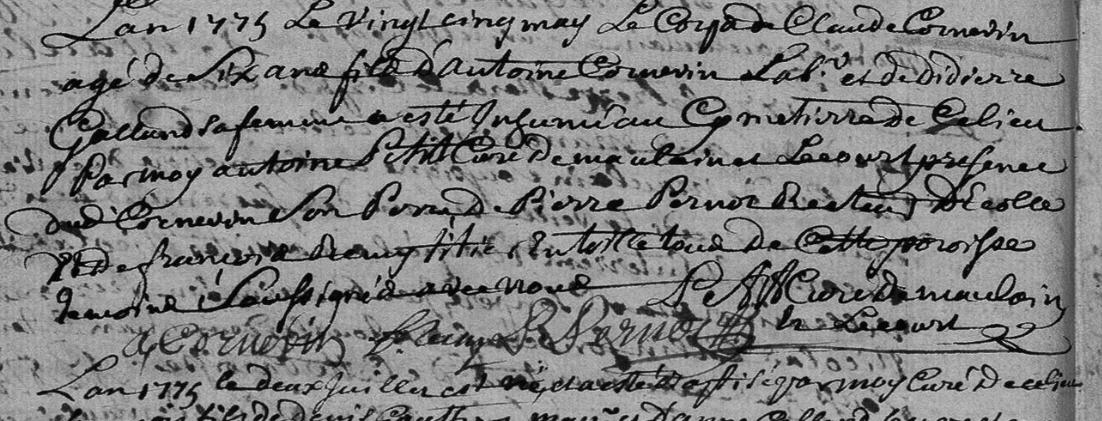 L'an 1775 Le vingt cinq may Le Corps de Claude Cornevin
agé de Six ans fils d'antoine Cornevin Lab.r et de didierre
Galland sa femme a esté Inhumé au Cymetierre de Ce lieu
Par moy antoine Petit Curé de maulain et Lecourt presence
dud Cornevin Son Perre, de Pierre Pernot Recteur D'Ecolle
Et de francois Remy tous de Cette paroisse
temoins Soussignés avec nous Petit Curé de maulain
a Cornevin f Remy P. Pernot et Lecourt
L'an 1775 le deux Juillet est né et a esté Baptisé par moy Curé De ce lieu
fils de denis